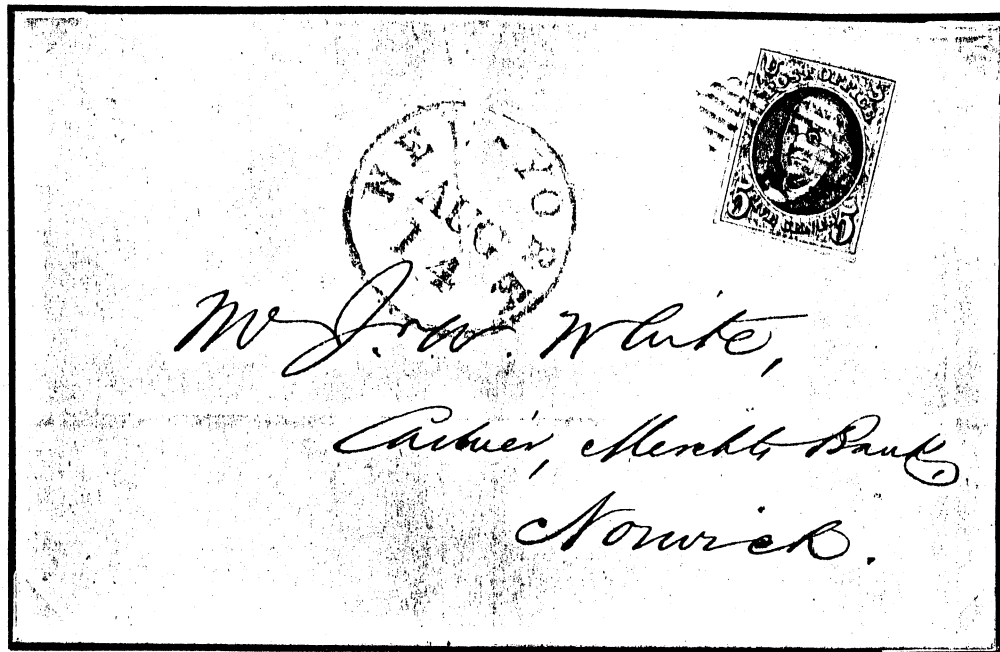 POST OFFICE
5 5
FIVE CENTS
NEW-YORK
AUG
4
Mr J. W. White,
Cashier, Merchts Bank,
Norwich.